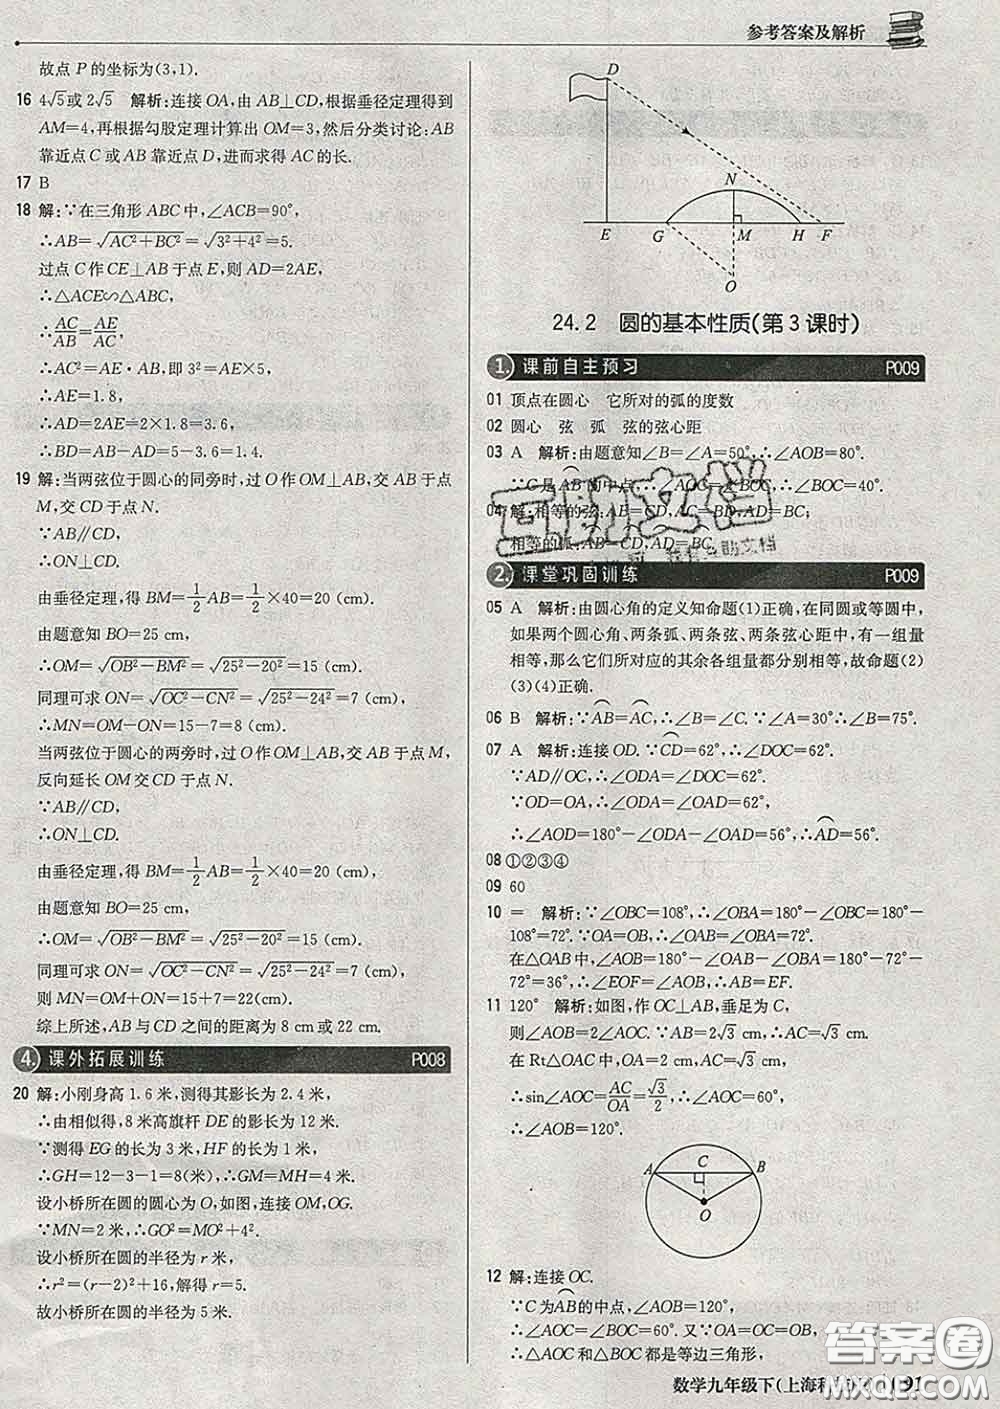 参考答案及解析
故点 P 的坐标为(3,1).
16 4√5或 2√5 解析:连接 OA,由 AB⊥CD,根据垂径定理得到
AM=4,再根据勾股定理计算出 OM=3,然后分类讨论:AB
靠近点 C 或 AB 靠近点 D,进而求得 AC 的长.
17 B
18 解:∵在三角形 ABC 中,∠ACB=90°,
∴AB=√(AC²+BC²)=√(3²+4²)=5.
过点 C 作 CE⊥AB 于点 E,则 AD=2AE,
∴△ACE∽△ABC,
∴AC/AB=AE/AC,
∴AC²=AE·AB,即 3²=AE×5,
∴AE=1.8,
∴AD=2AE=2×1.8=3.6,
∴BD=AB-AD=5-3.6=1.4.
19 解:当两弦位于圆心的同旁时,过 O 作 OM⊥AB,交 AB 于点
M,交 CD 于点 N.
∵AB∥CD,
∴ON⊥CD.
由垂径定理,得 BM=1/2 AB=1/2×40=20 (cm).
由题意知 BO=25 cm,
∴OM=√(OB²-BM²)=√(25²-20²)=15 (cm).
同理可求 ON=√(OC²-CN²)=√(25²-24²)=7 (cm),
∴MN=OM-ON=15-7=8 (cm).
当两弦位于圆心的两旁时,过 O 作 OM⊥AB 交 AB 于点 M,
反向延长 OM 交 CD 于点 N.
∵AB∥CD,
∴ON⊥CD.
由垂径定理,得 BM=1/2 AB=1/2×40=20 (cm).
由题意知 BO=25 cm,
∴OM=√(OB²-BM²)=√(25²-20²)=15 (cm).
同理可求 ON=√(OC²-CN²)=√(25²-24²)=7 (cm),
则 MN=OM+ON=15+7=22 (cm).
综上所述,AB 与 CD 之间的距离为 8 cm 或 22 cm.
4. 课外拓展训练 P008
20 解:小刚身高 1.6 米,测得其影长为 2.4 米,
∴由相似得,8 米高旗杆 DE 的影长为 12 米.
∵测得 EG 的长为 3 米,HF 的长为 1 米,
∴GH=12-3-1=8(米),∴GM=MH=4 米.
设小桥所在圆的圆心为 O,如图,连接 OM,OG.
∵MN=2 米,∴GO²=MO²+4².
设小桥所在圆的半径为 r 米,
∴r²=(r-2)²+16,解得 r=5.
故小桥所在圆的半径为 5 米.
D
N
E G M H F
O
24.2 圆的基本性质(第 3 课时)
1. 课前自主预习 P009
01 顶点在圆心 它所对的弧的度数
02 圆心 弦 弧 弦的弦心距
03 A 解析:由题意知∠B=∠A=50°,∴∠AOB=80°.
∵C 是AB的中点,∴∠AOC=∠BOC,∴∠BOC=40°.
04 解:相等的弦:AB=CD,AC=BD,AD=BC;
相等的弧:AB=CD,AD=BC.
互助文档
2. 课堂巩固训练 P009
05 A 解析:由圆心角的定义知命题(1)正确,在同圆或等圆中,
如果两个圆心角、两条弧、两条弦、两条弦心距中,有一组量
相等,那么它们所对应的其余各组量都分别相等,故命题(2)
(3)(4)正确.
06 B 解析:∵AB=AC,∴∠B=∠C. ∵∠A=30°∴∠B=75°.
07 A 解析:连接 OD. ∵CD=62°,∴∠DOC=62°.
∵AD∥OC,∴∠ODA=∠DOC=62°.
∵OD=OA,∴∠OAD=∠ODA=62°,
∴∠AOD=180°-∠ODA-∠OAD=56°,∴AD=56°.
08 ①②③④
09 60
10 = 解析:∵∠OBC=108°,∴∠OBA=180°-∠OBC=180°-
108°=72°. ∵OA=OB,∴∠OAB=∠OBA=72°.
在△OAB 中,∠AOB=180°-∠OAB-∠OBA=180°-72°-
72°=36°,∴∠EOF=∠AOB,∴AB=EF.
11 120° 解析:如图,作 OC⊥AB,垂足为 C,
则∠AOB=2∠AOC. ∵AB=2√3 cm,∴AC=√3 cm.
在 Rt△OAC 中,OA=2 cm,AC=√3 cm,
∴sin∠AOC=AC/OA=√3/2,∴∠AOC=60°,
∴∠AOB=120°.
A C B
O
12 解:连接 OC.
∵C 为AB的中点,∠AOB=120°,
∴∠AOC=∠BOC=60°. 又∵OA=OC=OB,
∴△AOC 和△BOC 都是等边三角形,
数学九年级下(上海科
91
答案圈
MXQE.COM